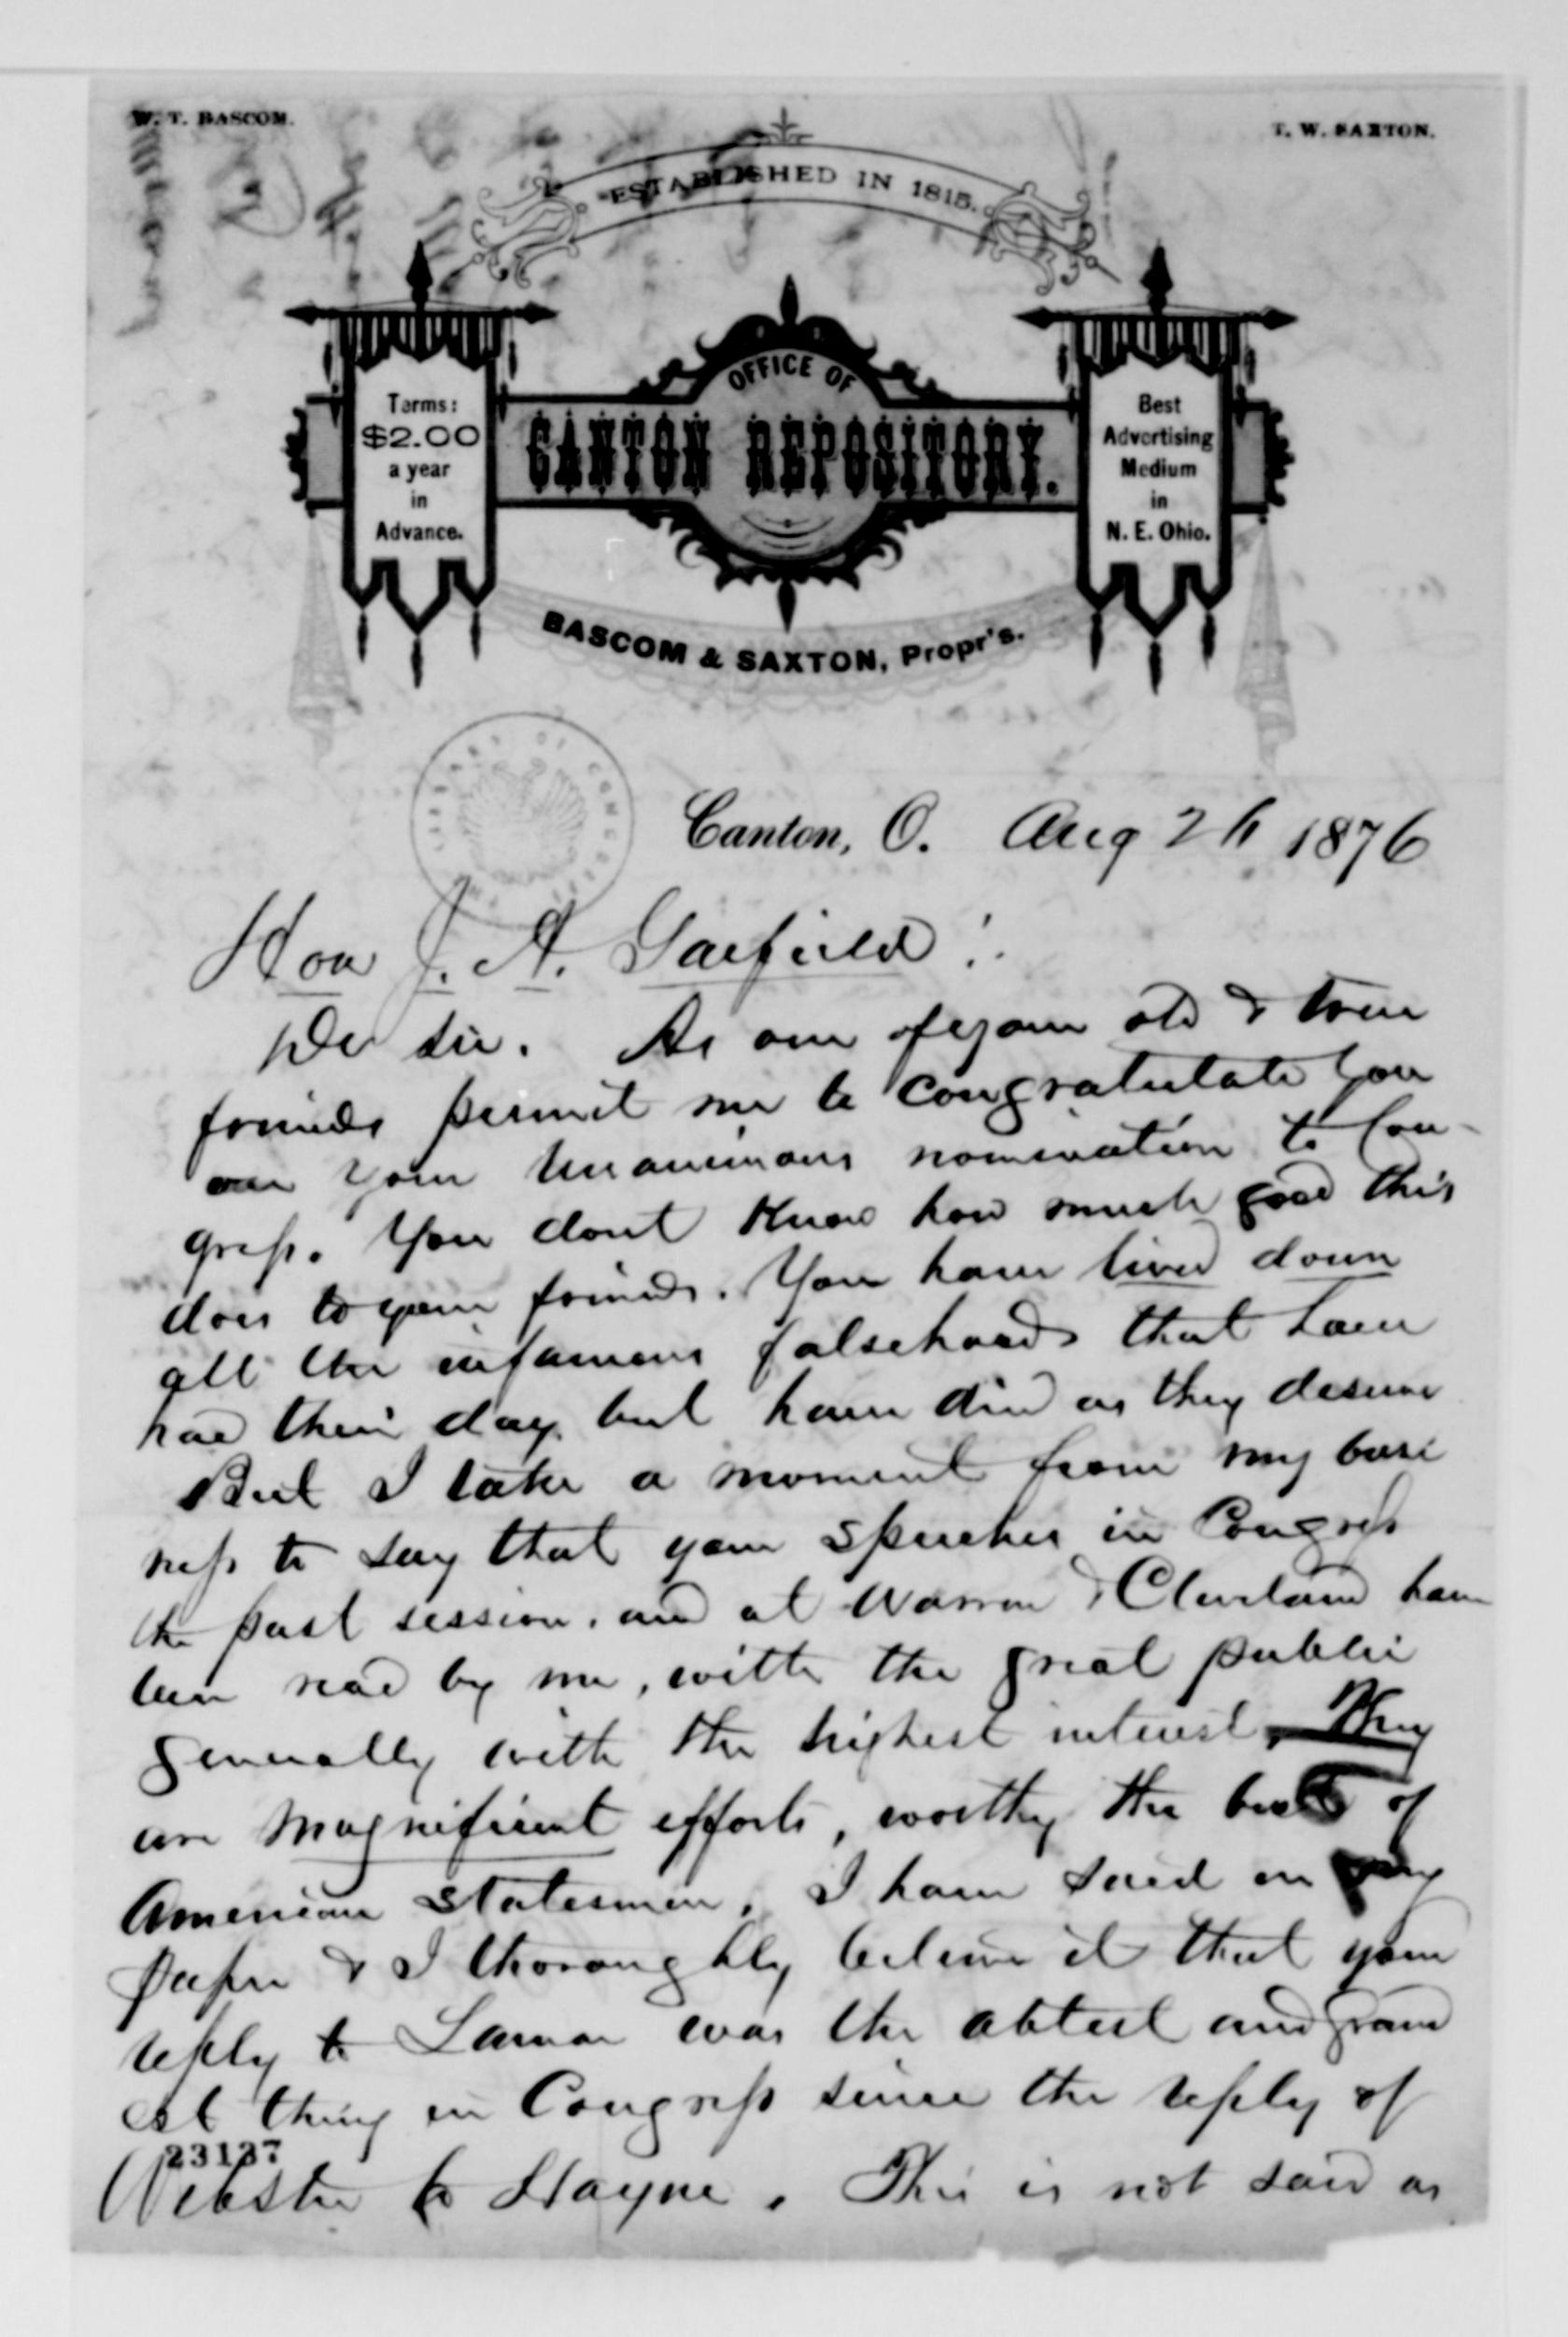 W. T. BASCOM.
T. W. SAXTON.
ESTABLISHED IN 1815.
OFFICE OF
CANTON REPOSITORY.
Terms:
$2.00
a year
in
Advance.
Best
Advertising
Medium
in
N. E. Ohio.
BASCOM & SAXTON, Propr's.
LIBRARY OF CONGRESS
Canton, O. Aug 26 1876
Hon J. A. Garfield :
Der Sir. As one of your old & true
friends permit me to congratulate you
on your unanimous nomination to Con-
gress. You dont know how much good this
does to your friends. You have lived down
all the infamous falsehoods that have
had their day, but have died as they deserve
But I take a moment from my busi
ness to say that your speeches in Congress
the past session, and at Warren & Cleveland have
been read by me, with the great public
generally with the highest interest, They
are magnificent efforts, worthy the best of
American Statesmen. I have said in my
paper & I thoroughly believe it that your
reply to Lamar was the ablest and grand
est thing in Congress since the reply of
23137
Webster to Hayne. This is not said as